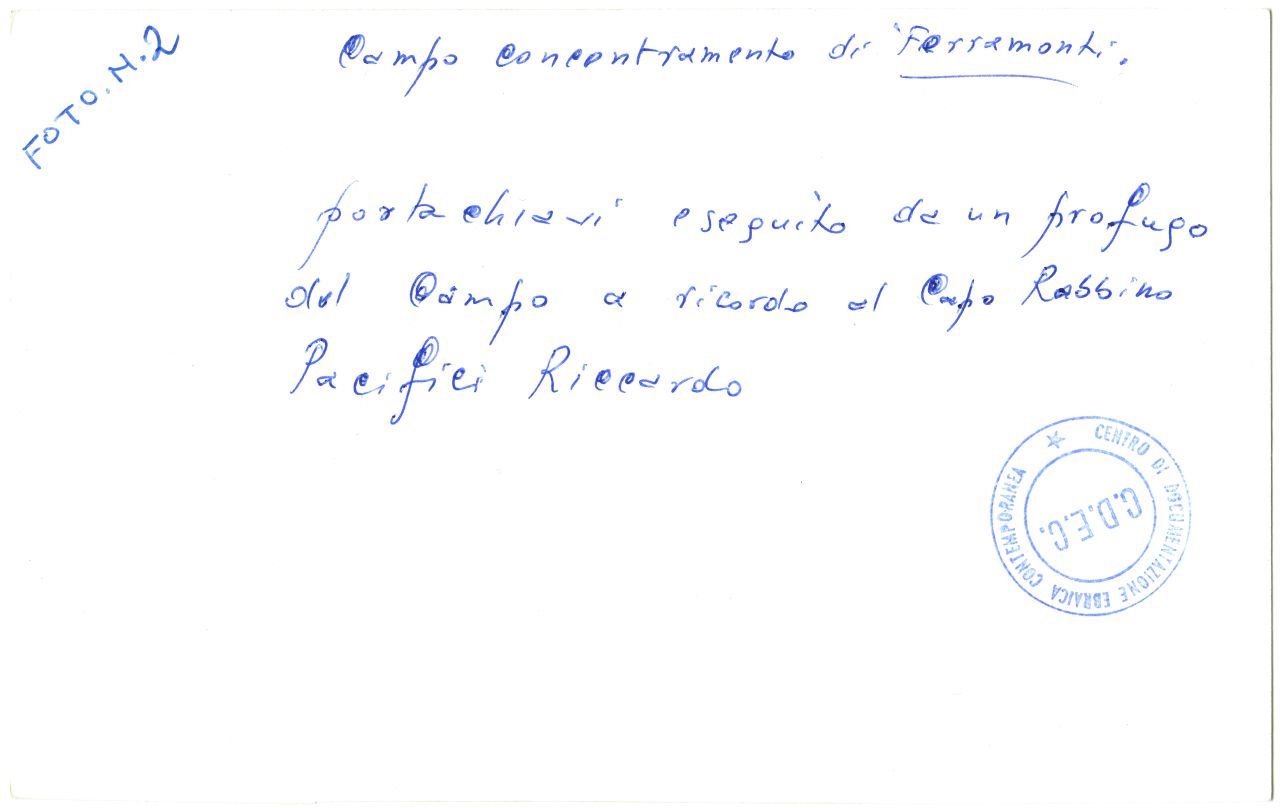 FOTO. N. 2
Campo concentramento di Ferramonti.
portachiavi eseguito da un profugo
del Campo a ricordo al Capo Rabbino
Pacifici Riccardo
CENTRO DI DOCUMENTAZIONE EBRAICA CONTEMPORANEA
C.D.E.C.